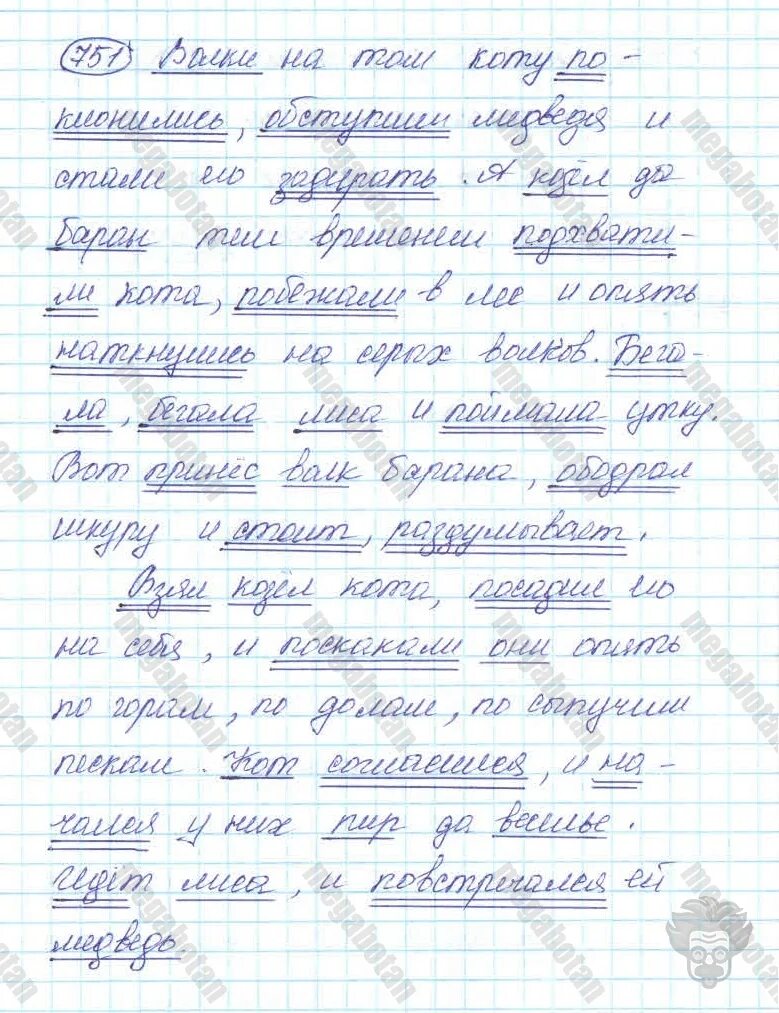 751 Волки на том коту по-
клонились, обступили медведя и
стали его задирать. А козёл да
баран тем временем подхвати-
ли кота, побежали в лес и опять
наткнулись на серых волков. Бега-
ла, бегала лиса и поймала утку.
Вот принёс волк барана, ободрал
шкуру и стоит, раздумывает.
Взял козёл кота, посадил его
на себя, и поскакали они опять
по горам, по долам, по сыпучим
пескам. Кот согласился, и на-
чался у них пир да веселье.
Идёт лиса, и повстречался ей
медведь.
megabotan